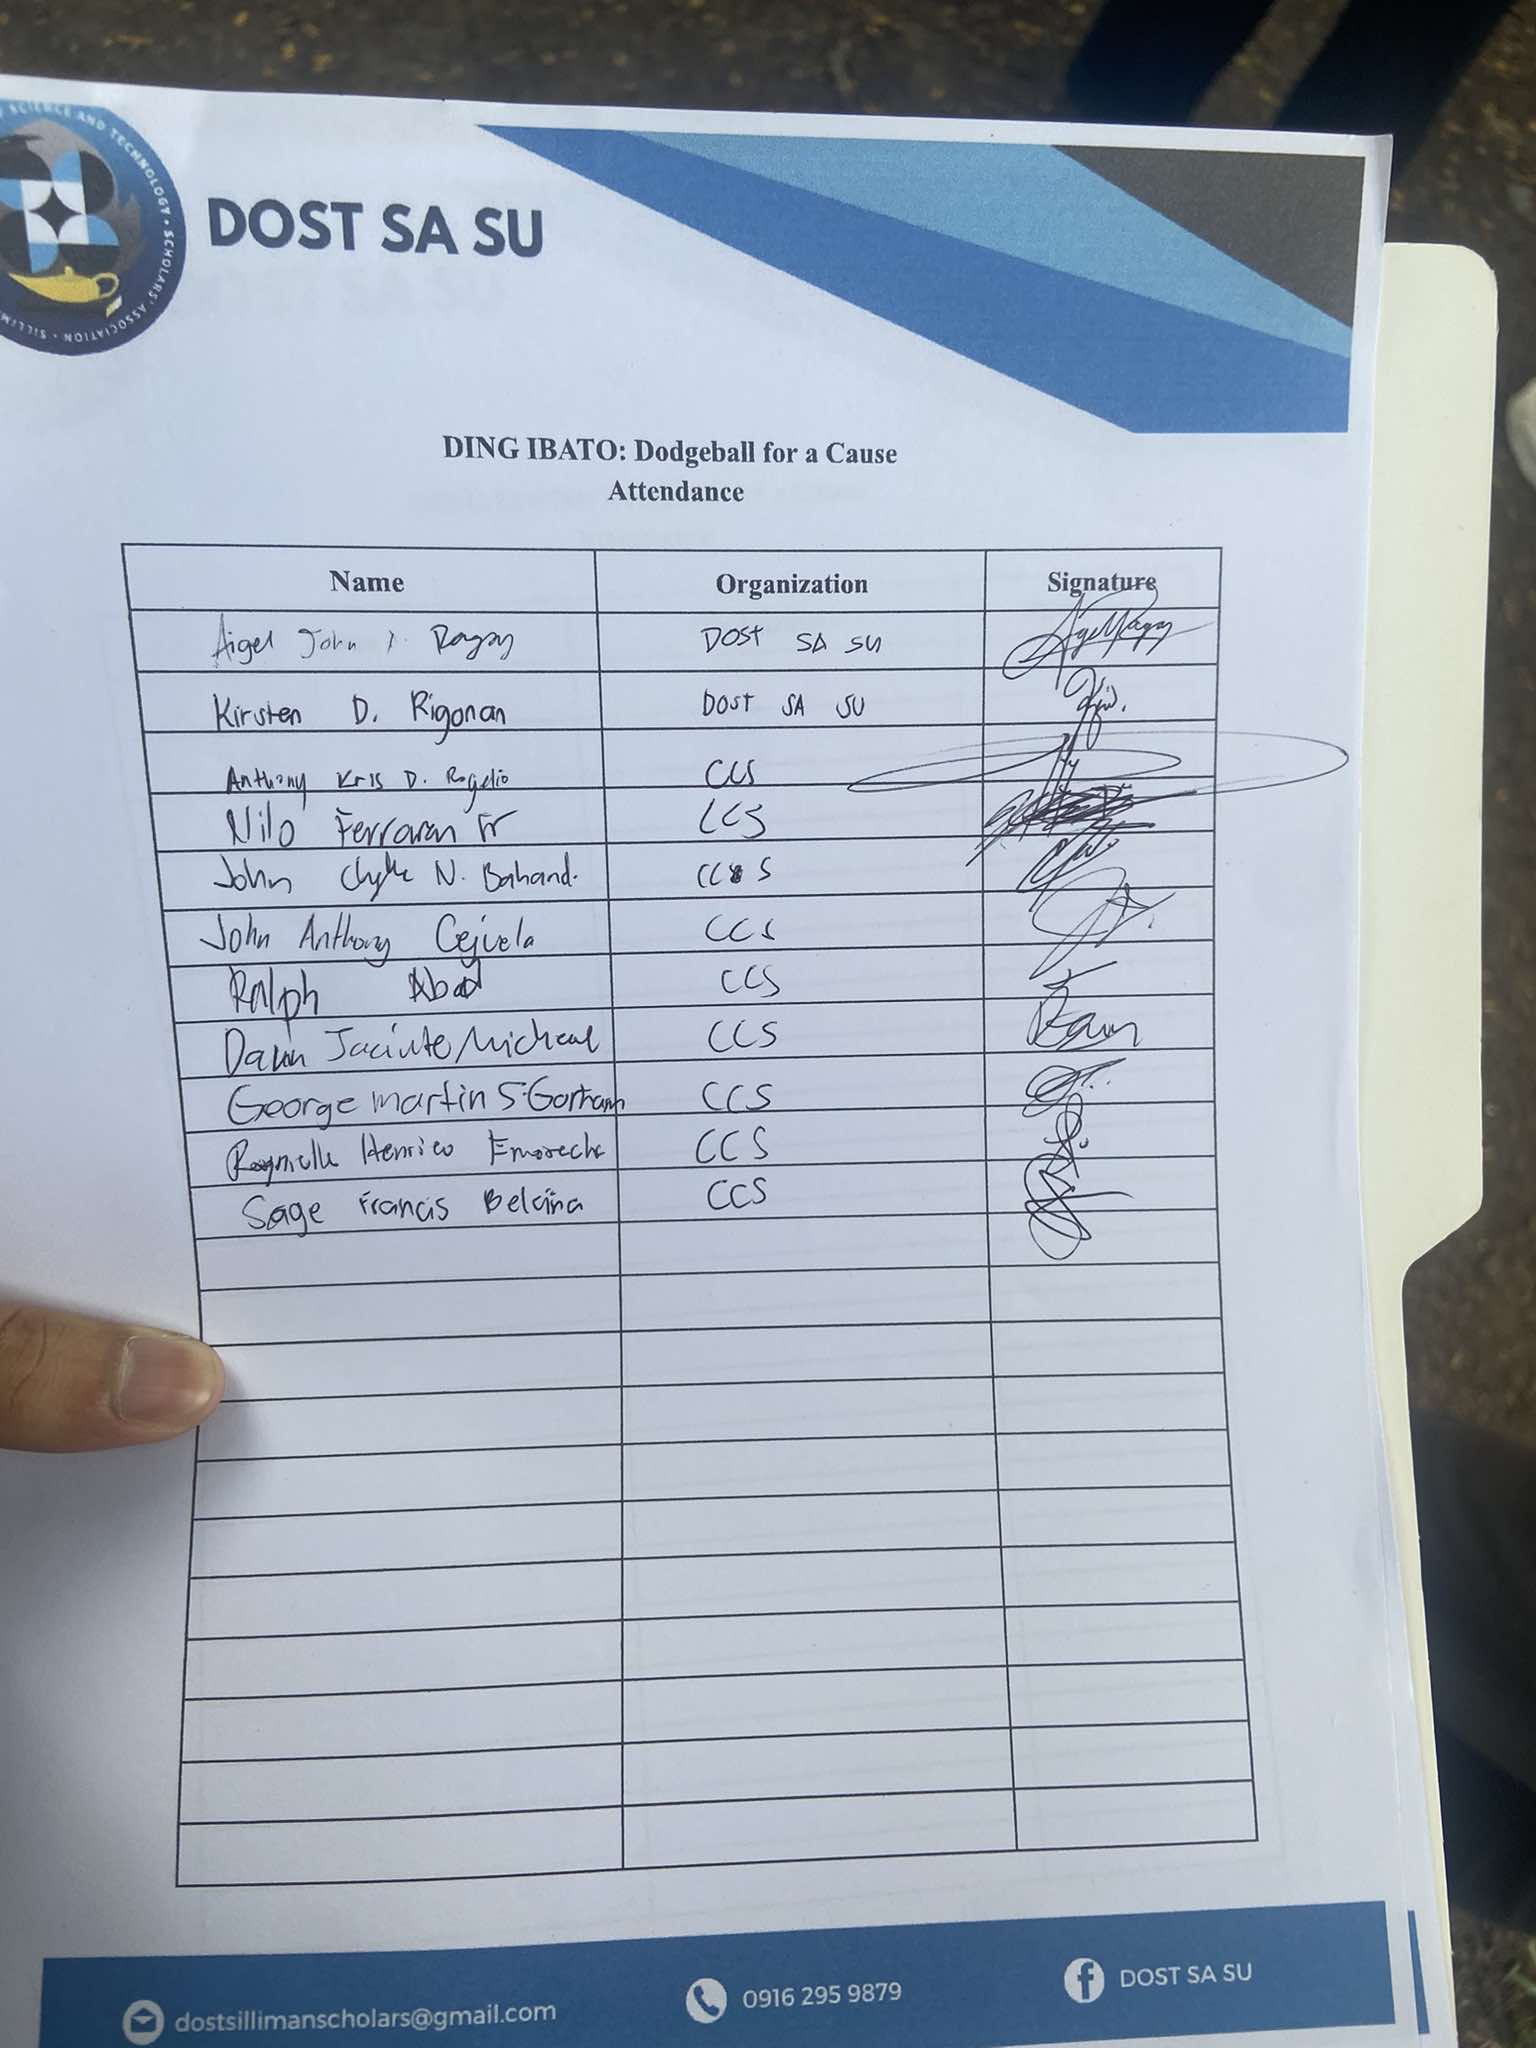 SCIENCE AND TECHNOLOGY • SCHOLARS' ASSOCIATION •
DOST SA SU
DING IBATO: Dodgeball for a Cause
Attendance
Name Organization Signature
Aigel John Ragay DOST SA SU
Kirsten D. Rigonan DOST SA SU
Anthony Kris D. Rogelio CCS
Nilo Ferraren Jr CCS
John Clyde N. Bahand. CCS
John Anthony Cejuela CCS
Ralph Abad CCS
Jacinto Micheal CCS
George Martin S. Gorham CCS
Henrico CCS
Sage Francis Belciña CCS
dostsillimanscholars@gmail.com 0916 295 9879 DOST SA SU